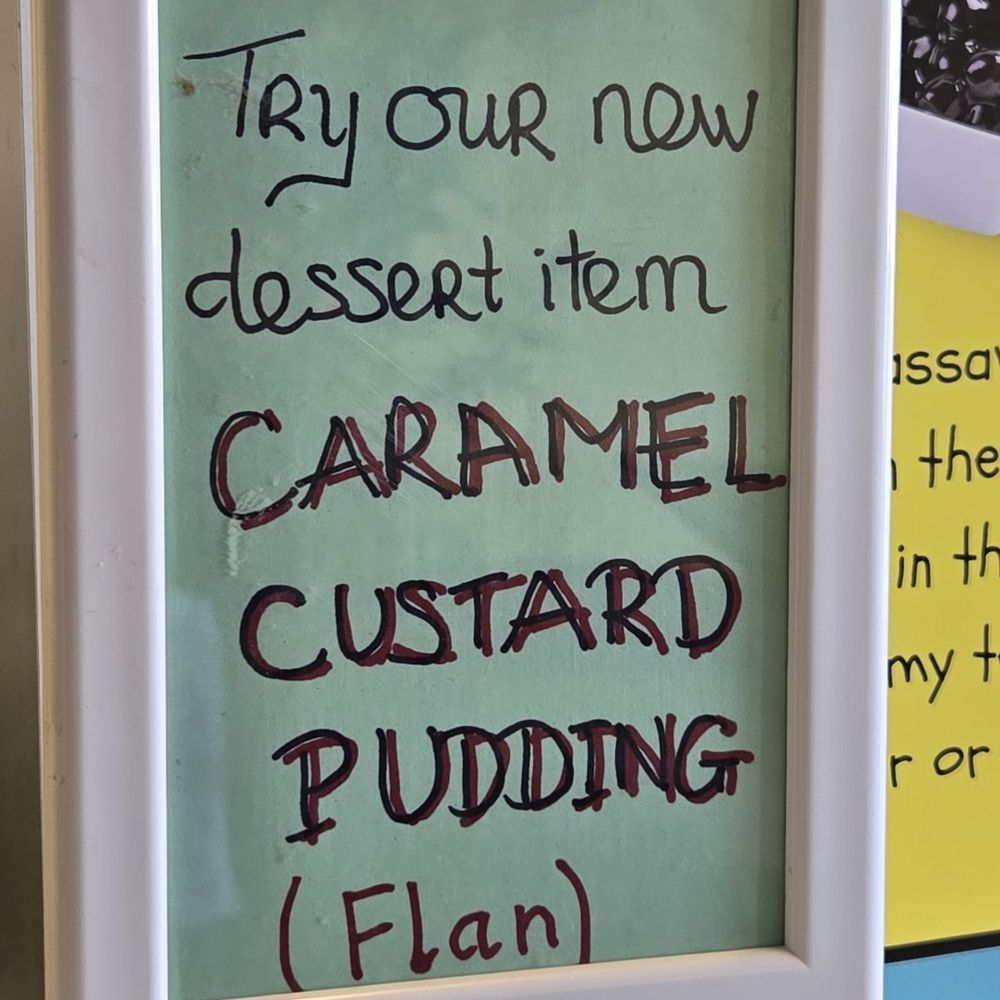 TRy OUR new
dessert item
CARAMEL
CUSTARD
PUDDING
(Flan)
the
in
my
r or